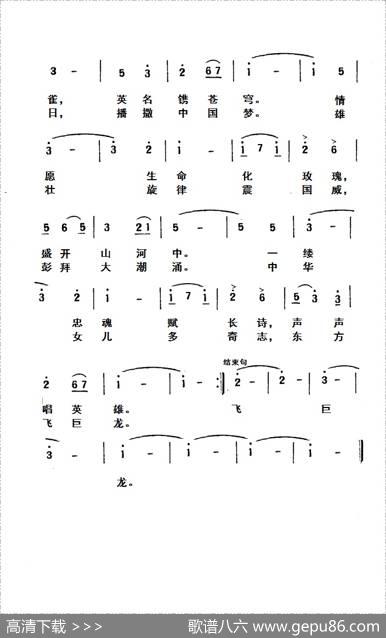 3 - | 5 3 | 2 67 | i - | i 5
雀, 英名镌苍穹。 情
日, 播撒中国梦。 雄
3 - | 3 2 | i - | i 7 i | 2 6
愿 生命 化玫瑰,
壮 旋律 震国威,
5 6 5 | 3 21 | 5 - | 5 5
盛开山河中。 一缕
彭拜大潮涌。 中华
3 2 | i - | i 7 i | 2 6 | 5 3 3
忠魂赋长诗, 声声
女儿多奇志, 东方
结束句
2 67 | i - | i - :| 2 - | 2 3
唱英雄。 飞 巨
飞巨龙。
3 - | i - | i - | i - | i - ‖
龙。
高清下载 >>>
歌谱八六 www.gepu86.com